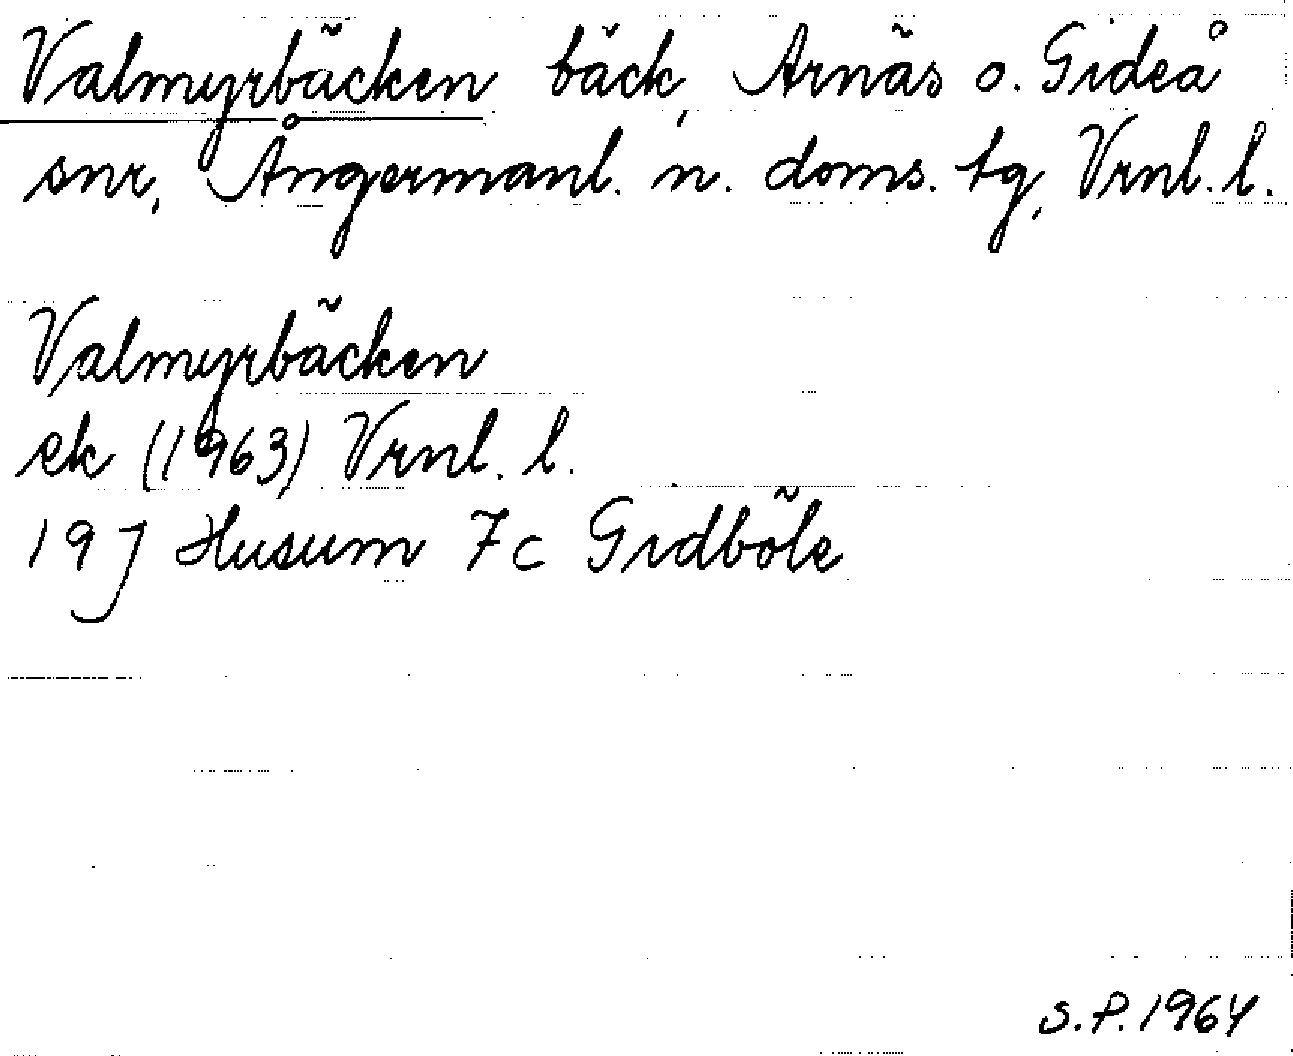 Valmyrbäcken bäck, Arnäs o. Gideå
snr, Ångermanl. n. doms. tg, Vrnl. l.
Valmyrbäcken
ek (1963) Vrnl. l.
19 J Husum 7c Gidböle
S.P. 1964